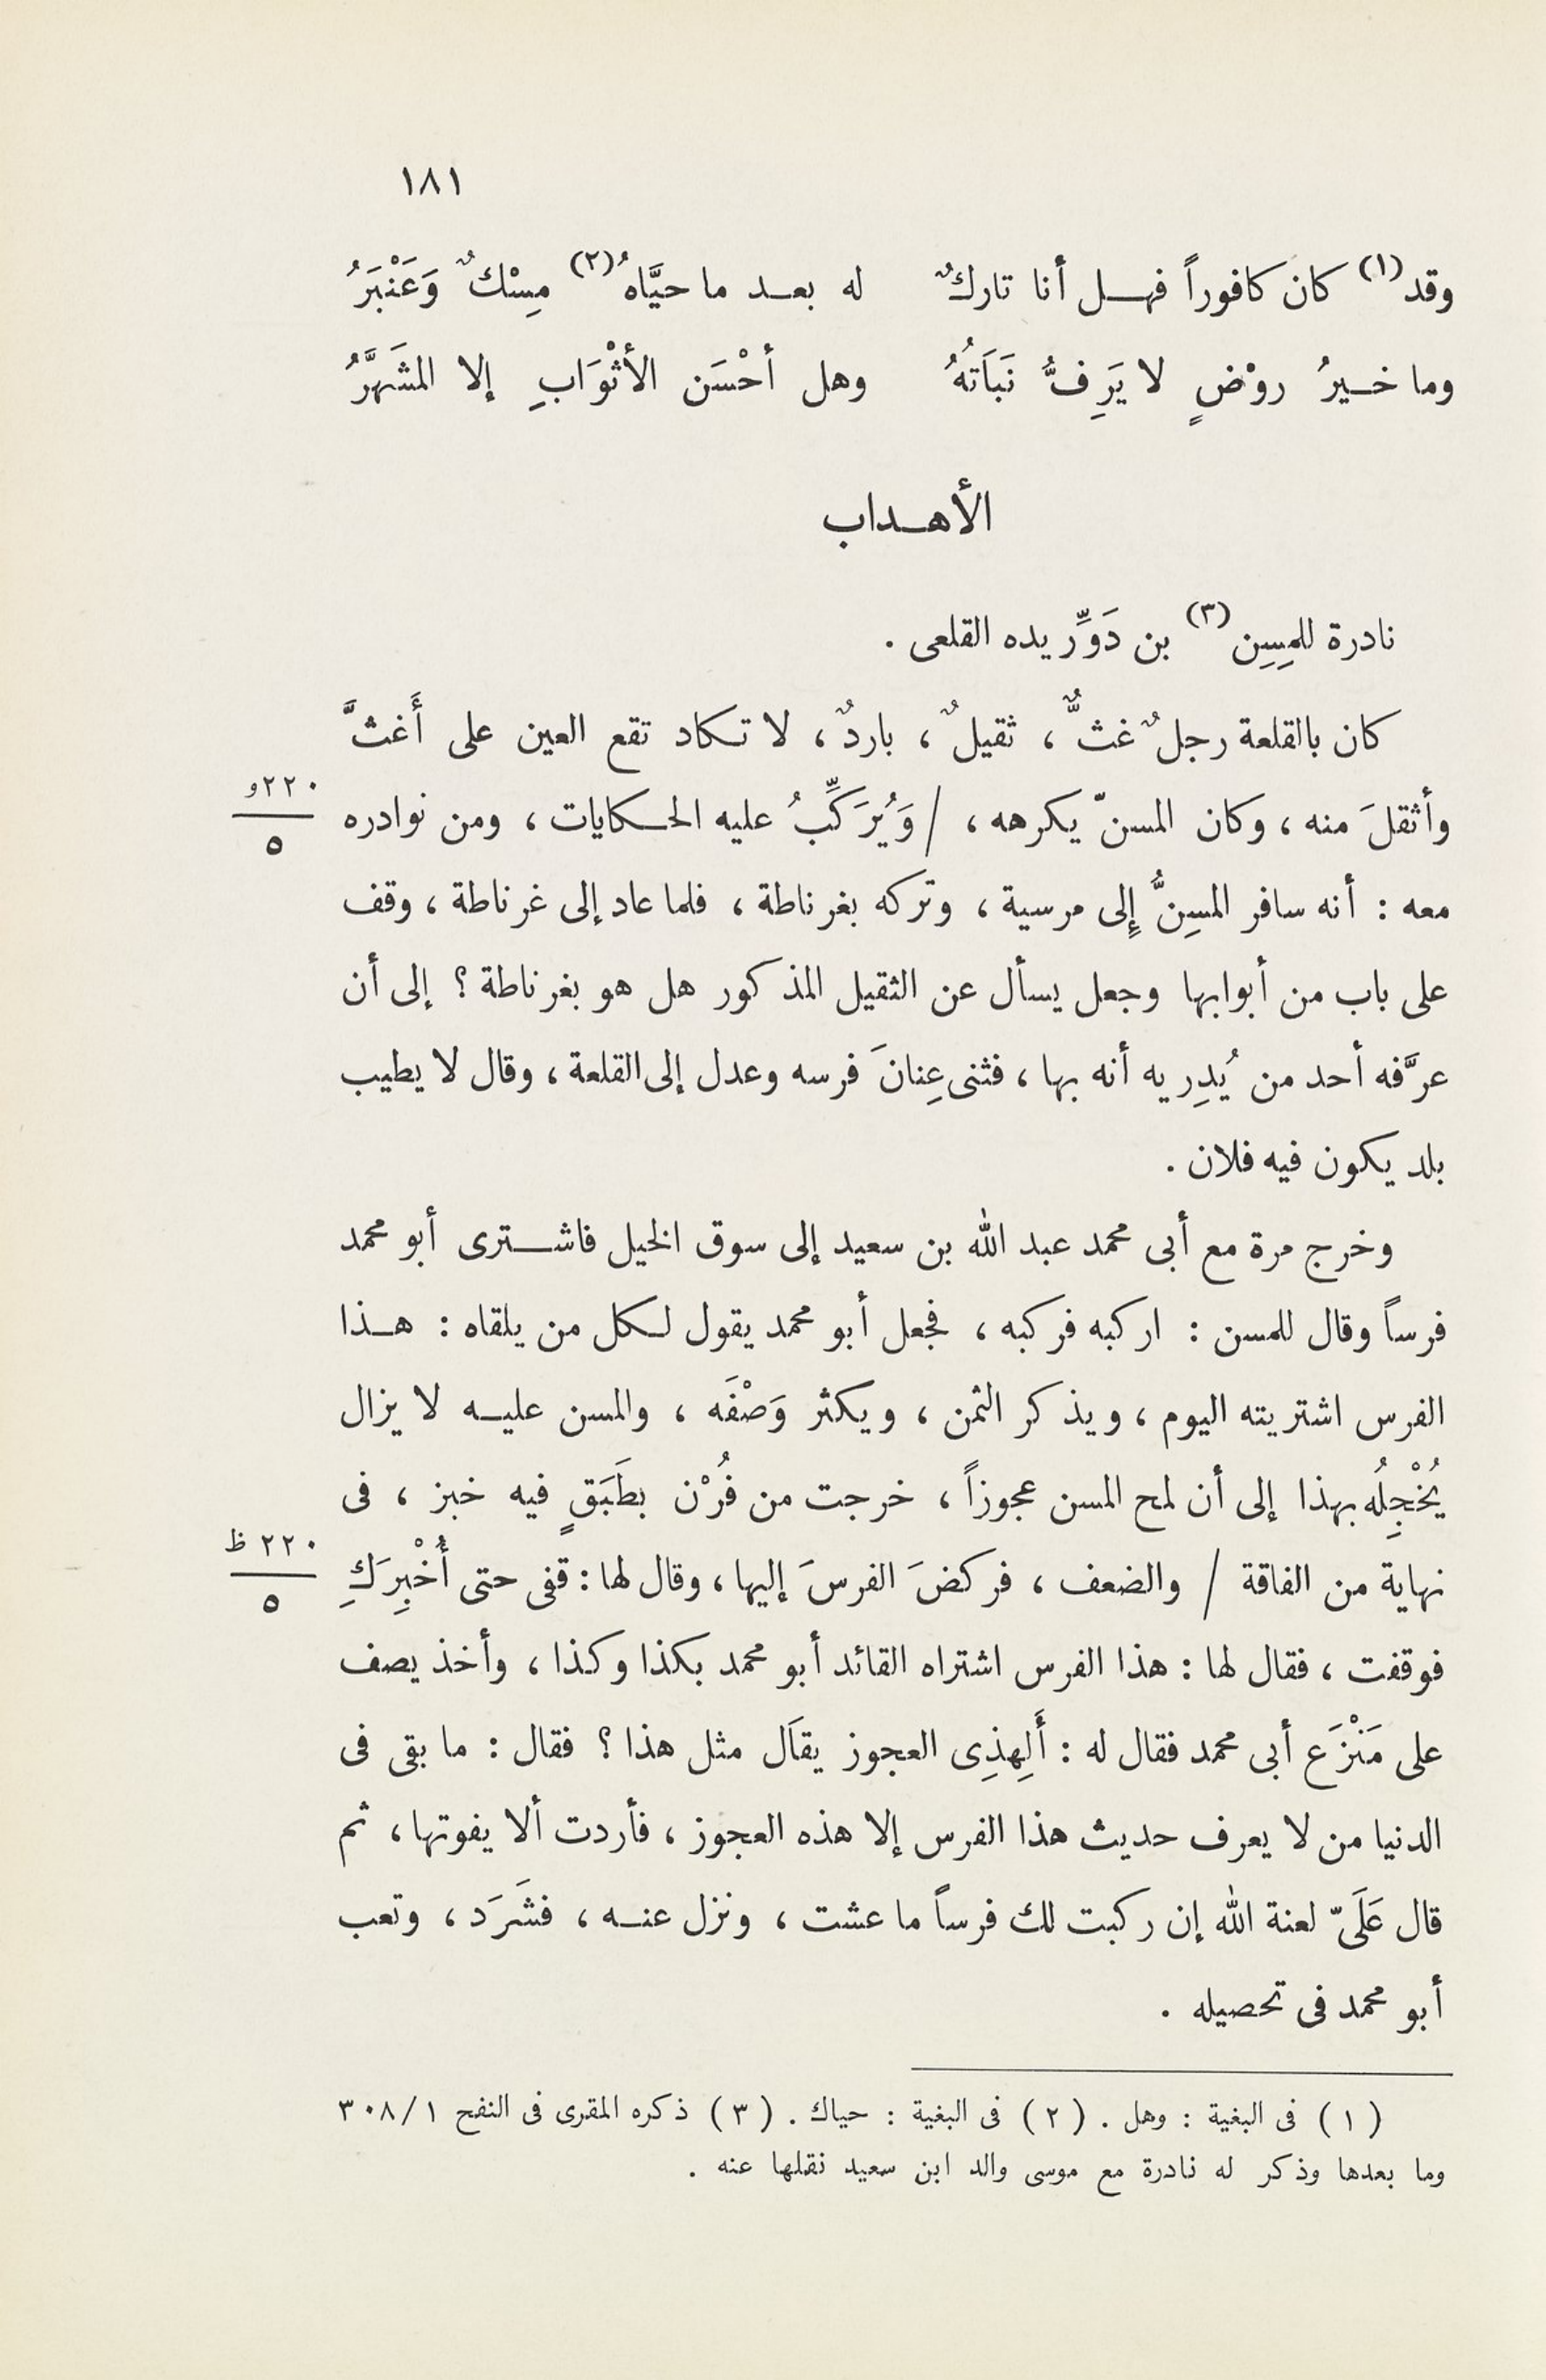 ١٨١
وقد(١) كان كافوراً فهل أنا تاركٌ له بعد ما حيَّاهُ(٢) مِسْكٌ وَعَنْبَرُ
وما خيرُ روْضٍ لا يَرِفُّ نَبَاتَهُ وهل أحْسَن الأثْوَابِ إلا المشَهَّرُ
الأهداب
نادرة للمِسِن(٣) بن دَوِّريده القلعى .
كان بالقلعة رجلٌ غثٌّ ، ثقيلٌ ، باردٌ ، لا تكاد تقع العين على أَغثَّ
وأثقلَ منه ، وكان المسنّ يكرهه ، / وَيُرَكِّبُ عليه الحكايات ، ومن نوادره
٢٢٠و
٥
معه : أنه سافر المسِنُّ إلى مرسية ، وتركه بغرناطة ، فلما عاد إلى غرناطة ، وقف
على باب من أبوابها وجعل يسأل عن الثقيل المذكور هل هو بغرناطة ؟ إلى أن
عرَّفه أحد من يُدِريه أنه بها ، فثنى عِنانَ فرسه وعدل إلى القلعة ، وقال لا يطيب
بلد يكون فيه فلان .
وخرج مرة مع أبى محمد عبد الله بن سعيد إلى سوق الخيل فاشترى أبو محمد
فرساً وقال للمسن : اركبه فركبه ، فجعل أبو محمد يقول لكل من يلقاه : هذا
الفرس اشتريته اليوم ، ويذكر الثمن ، ويكثر وَصْفَه ، والمسن عليه لا يزال
يُخْجِلُه بهذا إلى أن لمح المسن عجوزاً ، خرجت من فُرْن بطَبَقٍ فيه خبز ، فى
نهاية من الفاقة / والضعف ، فركضَ الفرسَ إليها ، وقال لها : قفى حتى أُخْبِرَكِ
٢٢٠ ظ
٥
فوقفت ، فقال لها : هذا الفرس اشتراه القائد أبو محمد بكذا وكذا ، وأخذ يصف
على مَنْزَع أبى محمد فقال له : أَلِهذِى العجوز يقاَل مثل هذا ؟ فقال : ما بقى فى
الدنيا من لا يعرف حديث هذا الفرس إلا هذه العجوز ، فأردت ألا يفوتها ، ثم
قال عَلَىّ لعنة الله إن ركبت لك فرساً ما عشت ، ونزل عنه ، فشَرَد ، وتعب
أبو محمد فى تحصيله .
(١) فى البغية : وهل . (٢) فى البغية : حياك . (٣) ذكره المقرى فى النفح ٣٠٨/١
وما بعدها وذكر له نادرة مع موسى والد ابن سعيد نقلها عنه .